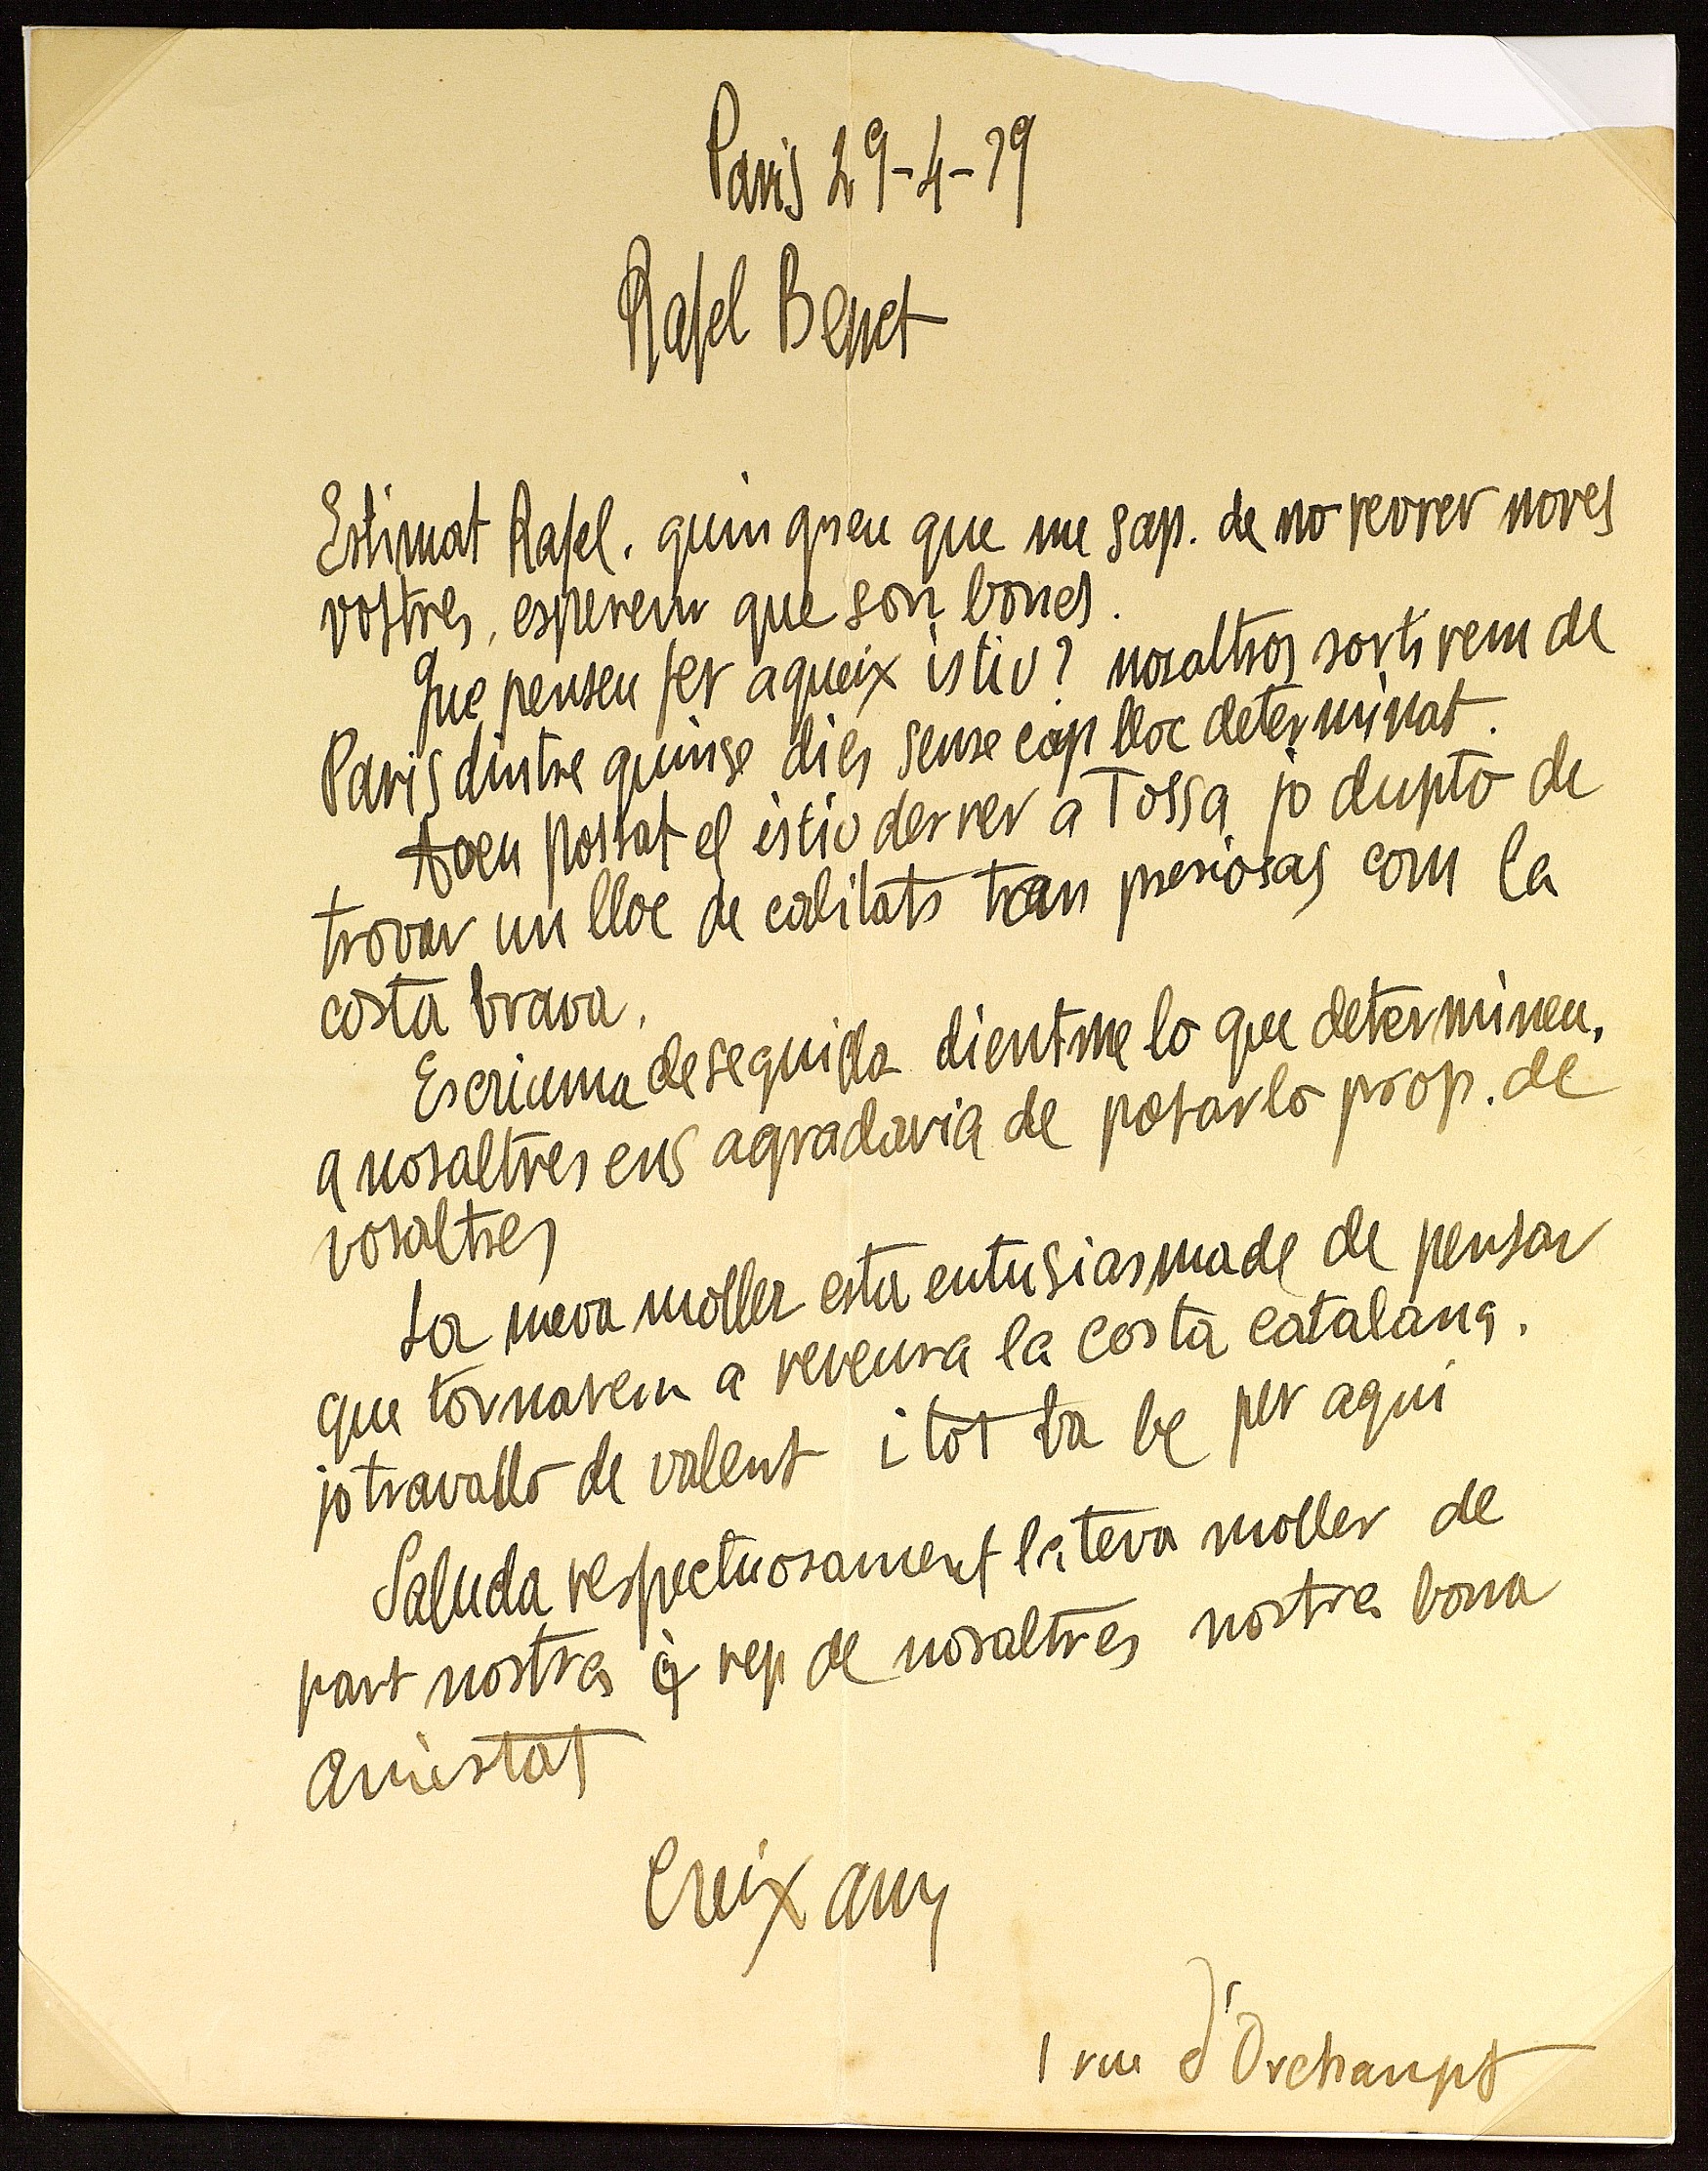 Paris 29-4-29
Rafel Benet
Estimat Rafel. quin greu que me sap. de no revrer noves
vostres, esperem que son bones.
Que penseu fer aqueix istiu? nosaltros sortirem de
Paris dintre quinse dies sense cap lloc determinat.
Aveu passat el istiu derrer a Tossa jo dupto de
trovar un lloc de calitats tan presiosas com la
costa brava.
Escriuma deseguida dientme lo que determineu.
a nosaltres ens agradaria de pasarlo prop. de
vosaltres
La meva moller esta entusiasmade de pensar
que tornarem a reveura la costa catalana.
jo travallo de valent i tot va be per aqui
Saluda respectuosament la teva moller de
part nostra i rep de nosaltres nostra bona
amistat
Creixams
1 rue d'Orchampt